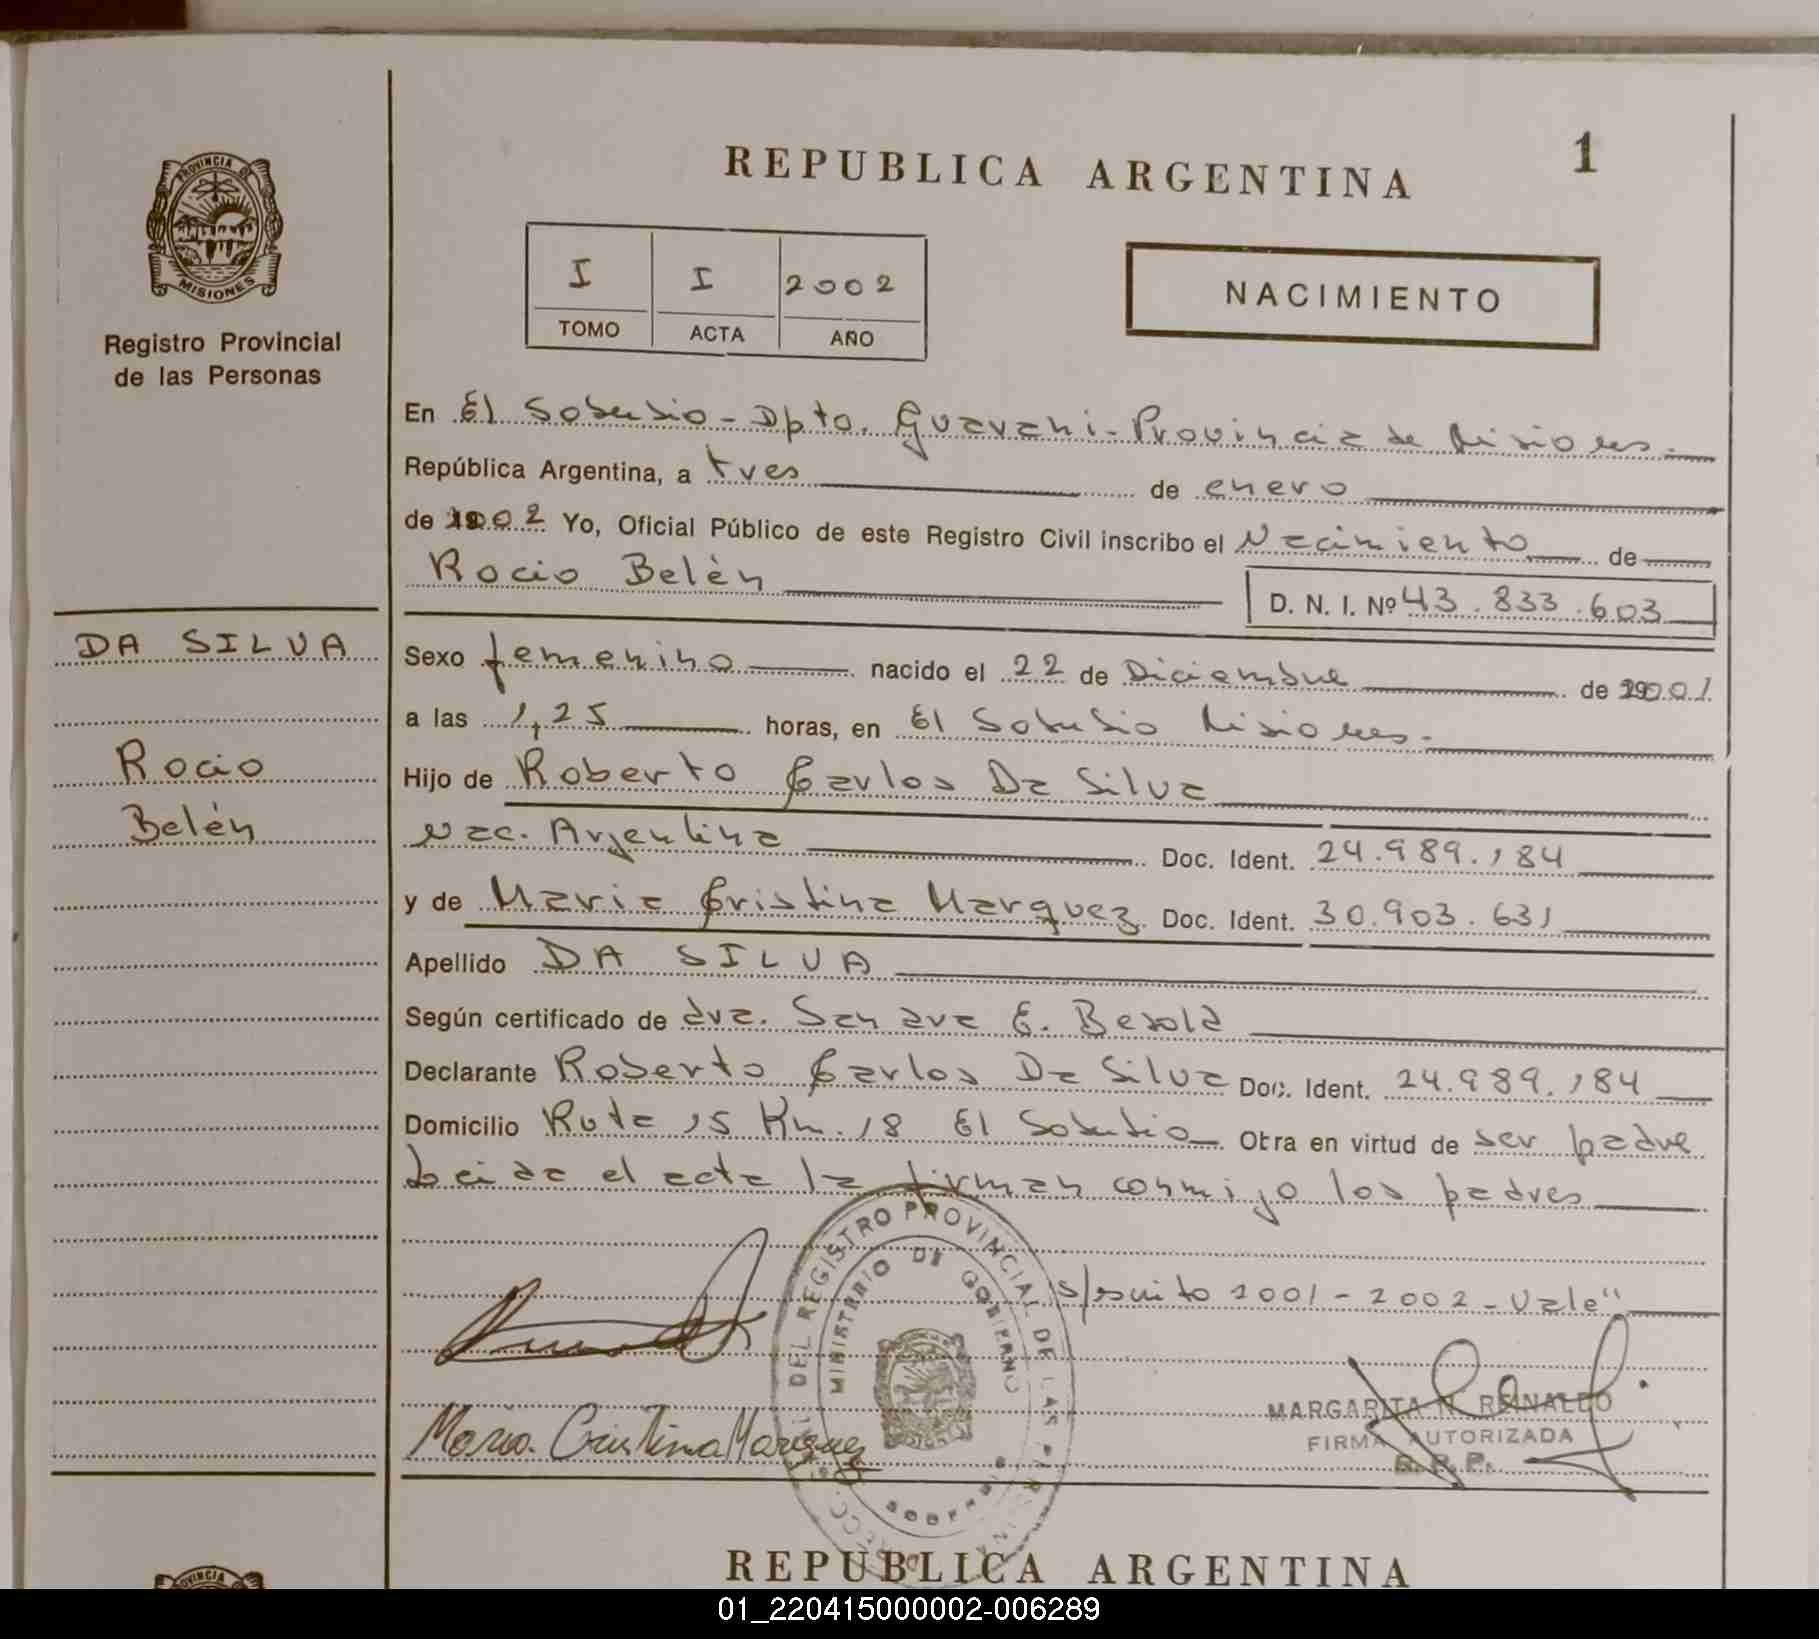 REPUBLICA ARGENTINA
1
PROVINCIA DE
MISIONES
Registro Provincial
de las Personas
I I 2002
TOMO ACTA AÑO
NACIMIENTO
En El Soberbio - Dpto. Guarani - Provincia de Misiones.
República Argentina, a tres de enero
de 2002 Yo, Oficial Público de este Registro Civil inscribo el Nacimiento de
Rocio Belén
D. N. I. Nº 43.833.603
DA SILVA
Rocio
Belén
Sexo femenino nacido el 22 de Diciembre de 2001
a las 1,25 horas, en El Soberbio Misiones.
Hijo de Roberto Carlos Da Silva
Nac. Argentina Doc. Ident. 24.989.184
y de Maria Cristina Marquez Doc. Ident. 30.903.631
Apellido DA SILVA
Según certificado de dra. Sandra E. Besold
Declarante Roberto Carlos Da Silva Doc. Ident. 24.989.184
Domicilio Ruta 15 Km. 18 El Soberbio Obra en virtud de ser padre
Leida el acta la firman conmigo los padres
s/escrito 2001 - 2002 - Vale"
DEL REGISTRO PROVINCIAL DE LAS
MINISTERIO DE GOBIERNO
Maria Cristina Marquez
MARGARITA N. REINALDO
FIRMA AUTORIZADA
R. P. P.
REPUBLICA ARGENTINA
PROVINCIA
01_220415000002-006289